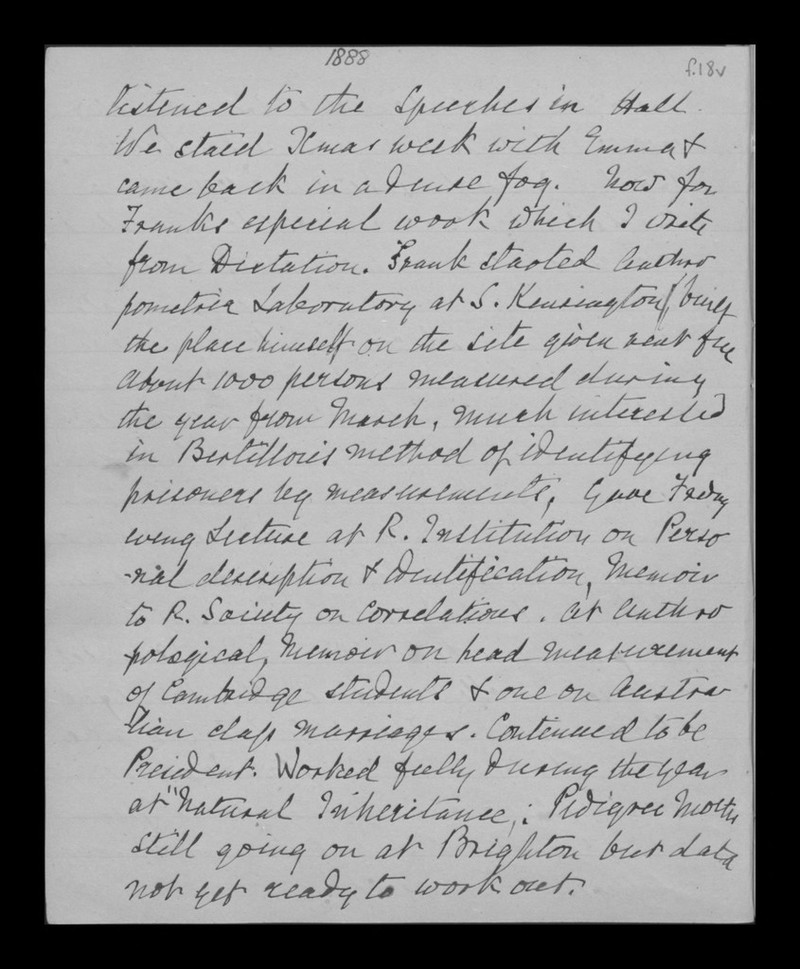 1888
f.18v
listened to the Speeches in Hall.
We staid Xmas week with Emma &
came back in a dense fog. Now for
Franks especial work which I write
from Dictation. Frank started Anthro
pometric Laboratory at S. Kensington, (built
the place himself on the site given rent free
About 1000 persons measured during
the year from March, much interested
in Bertillon's method of identifying
prisoners by measurements, Gave Friday
eving Lecture at R. Institution on Perso
-nal description & identification, Memoir
to R. Society on Correlations. At Anthro
pological, Memoir on head measurement
of Cambridge students & one on Austra
lian class marriages. Continued to be
President. Worked fully during the year
at "Natural Inheritance,: Pedigree Moths
still going on at Brighton but data
not yet ready to work out.